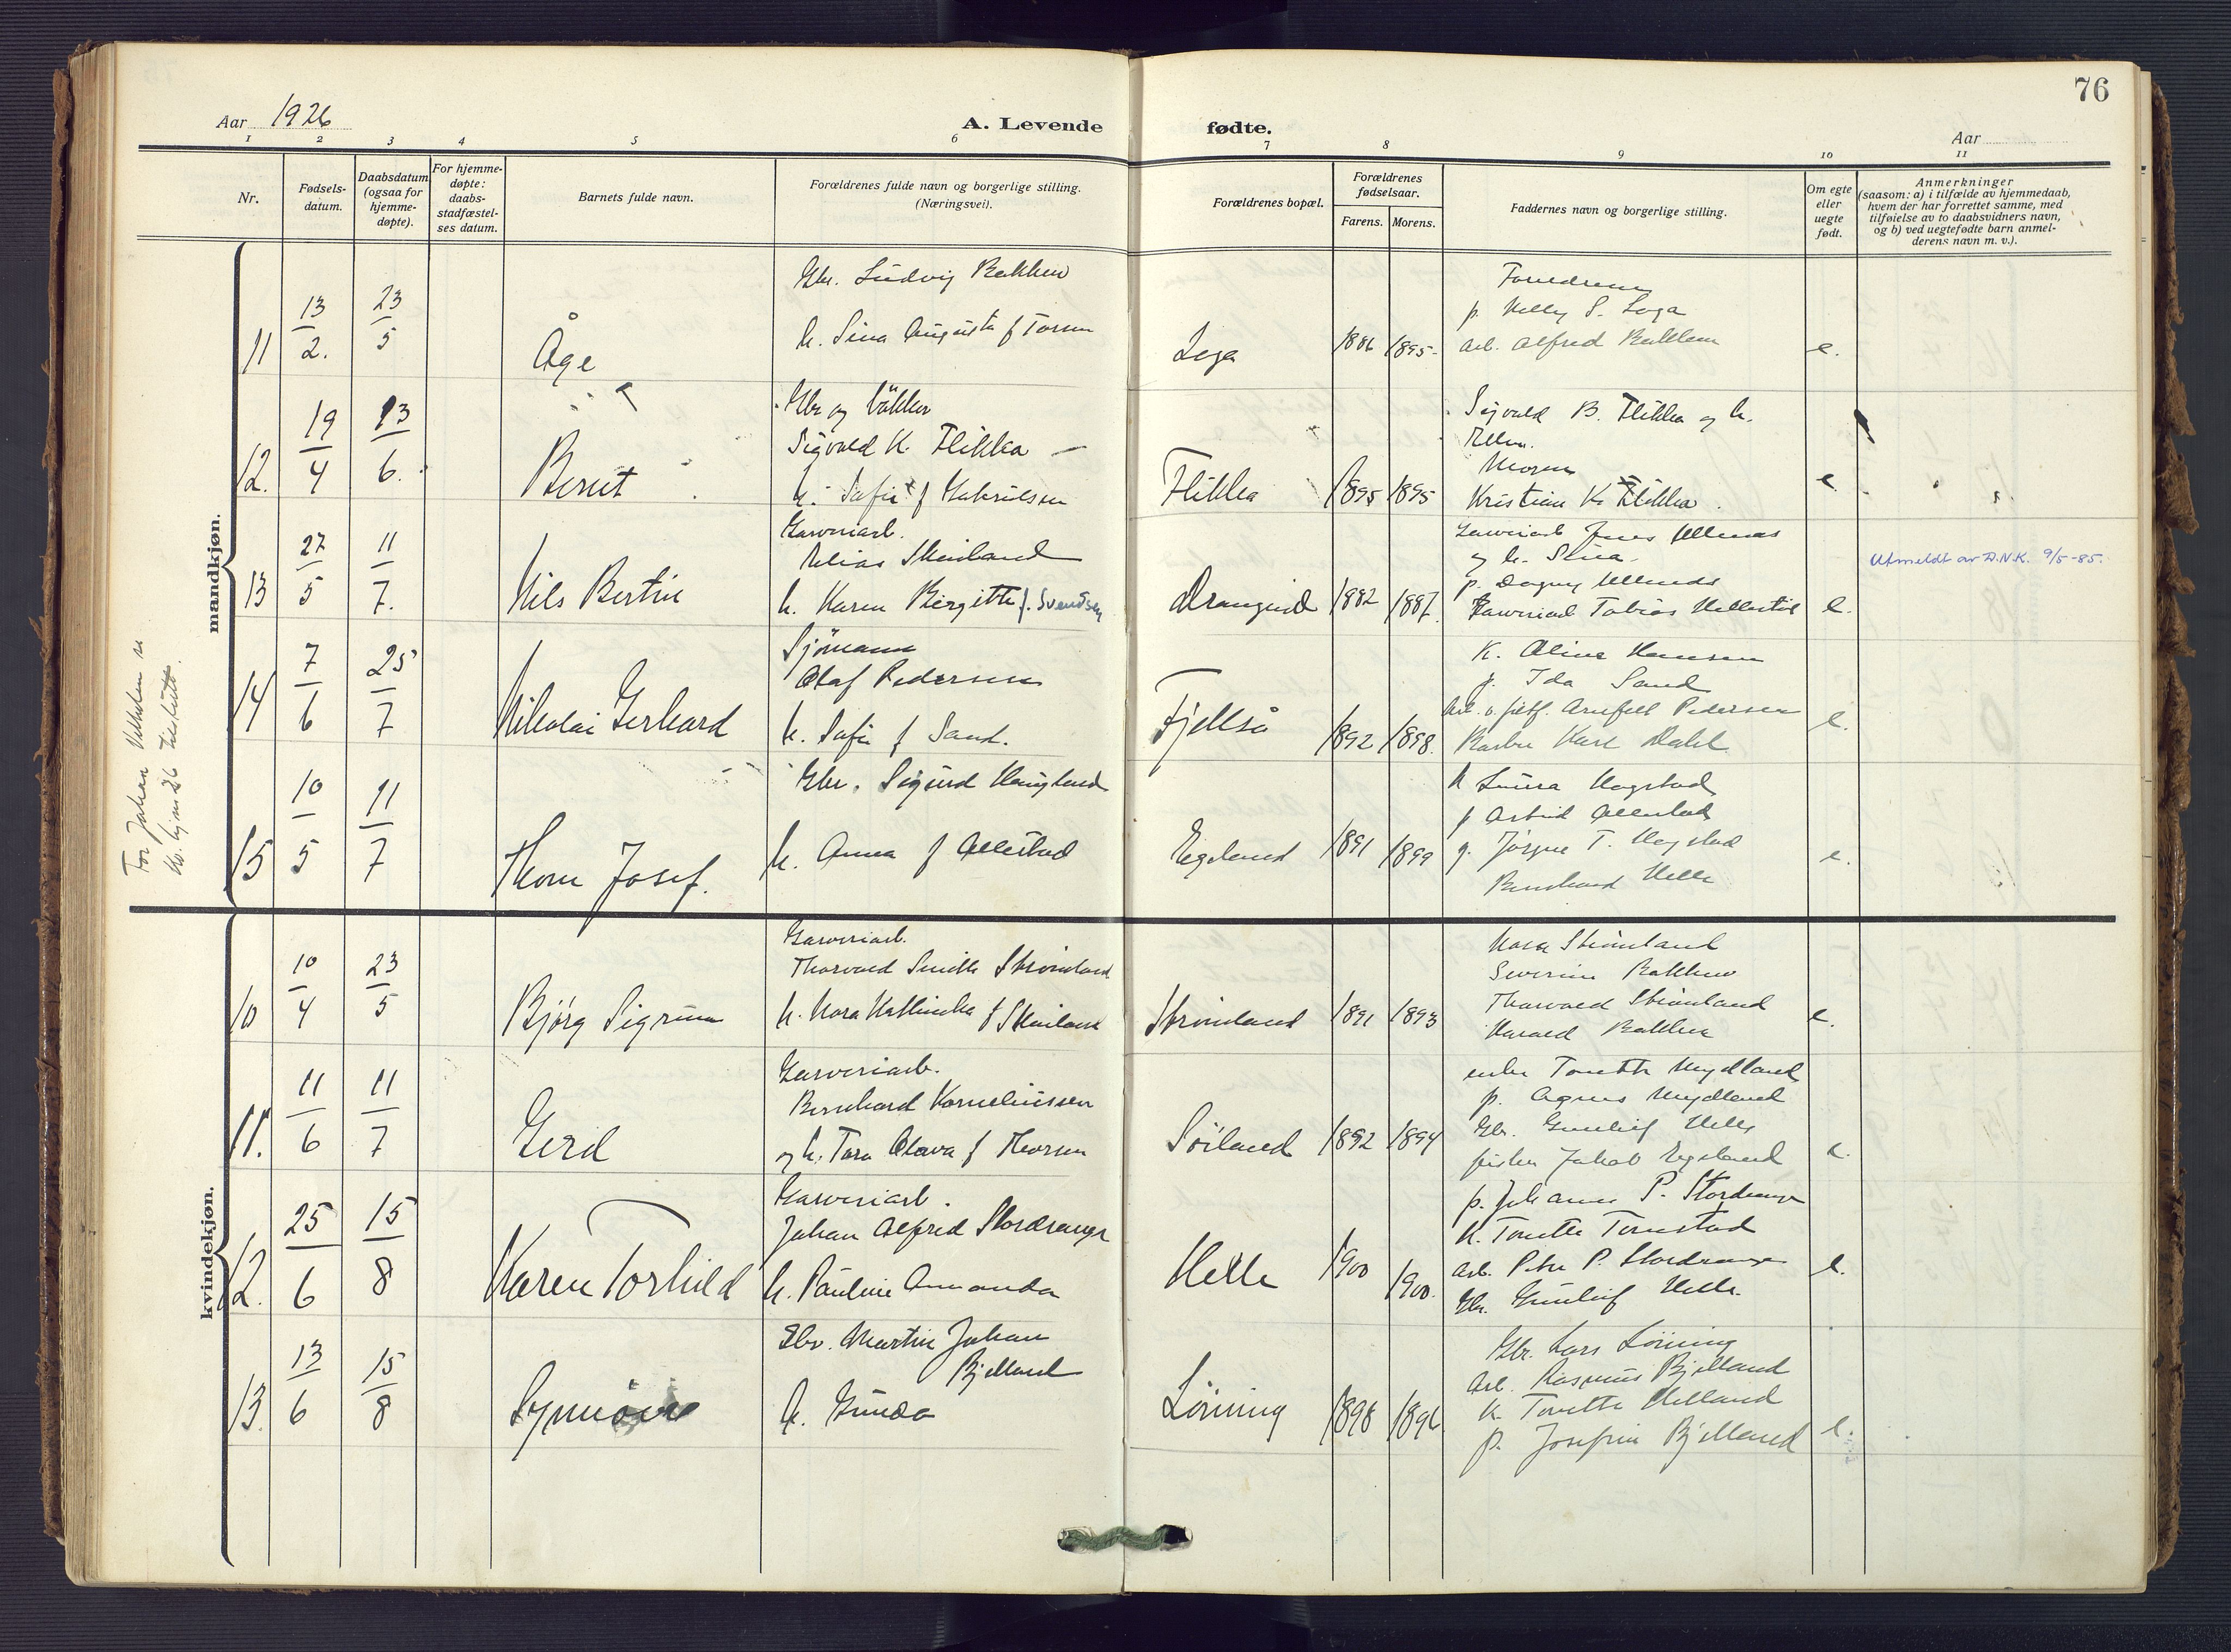 76
Aar 1926
A. Levende
fødte.
Aar
1 2 3 4 5 6 7 8 9 10 11
Nr.
Fødsels-
datum.
Daabsdatum
(ogsaa for
hjemme-
døpte).
For hjemme-
døpte:
daabs-
stadfæstel-
ses datum.
Barnets fulde navn.
Forældrenes fulde navn og borgerlige stilling.
(Næringsvei).
Forældrenes bopæl.
Forældrenes
fødselsaar.
Farens. Morens.
Faddernes navn og borgerlige stilling.
Om egte
eller
uegte
født.
Anmerkninger
(saasom: a) i tilfælde av hjemmedaab,
hvem der har forrettet samme, med
tilføielse av to daabsvidners navn,
og b) ved uegtefødte barn anmel-
derens navn m. v.).
mandkjøn.
11
13/2.
23/5
Åge
Gbr. Ludvig Bakken
h. Sina Augusta f
Loga
1886 1895.
Forældrene
p. Nelly S. Loga
arb. Alfred Bakken
e.
12.
19/4
13/6.
Berit
Gbr og
Sigvald K. Flikka
h. Sofie f Gabrielsen
Flikka
1895 1895
Sigvald B. Flikka og h.
Ellen.
Moren
Kristian K. Flikka.
e
13
27/5
11/7.
Nils Bertin
Garveriarb.
Elias Skeiland
h. Karen Birgitte f. Svendsen
Drangeid
1882 1887.
Garveriarb Jens Ullenes
og h. Stina.
p. Dagny Ullenes
Garveriarb Tobias
e.
Utmeldt av D.N.K. 9/5-85.
14
7/6
25/7
Nikolai Gerhard
Sjømann
Olaf Pedersen
h. Sofie f Sand.
Fjellså
1892 1898.
K. Alina Hansen
p. Ida Sand
Arnfelt Pedersen
Karl Dahl
e.
15
10/5
11/7
Thom Josef.
Gbr. Sigurd Haugland
h. Anna f Allestad
Egeland
1891 1899
h Laura Hogstad
p Astrid Allestad
g. Jørgen T. Hogstad
Bernhard Helle
e.
For Johan
kvindekjøn.
10
10/4
23/5
Bjørg Sigrunn
Garveriarb.
Thorvald Smith Strømland
h. Nora Kathinka f Skeiland
Strømland
1891 1893
Nora Strømland
Severine Bakken
Thorvald Strømland
Harald Bakken
e.
11.
11/6
11/7
Gerd
Garveriarb.
Bernhard Korneliussen
og h. Tora Olava f Thorsen
Søiland
1892 1894
enke Tonette Mydland
p. Agnes Mydland
Gbr. Gunleif Helle
fisker Jakob Egeland
e.
12.
25/6
15/8
Karen Torhild
Garveriarb.
Johan Alfred Stordrange
h. Pauline Amanda
Helle
1900
1900.
p. Johanne P. Stordrange
h. Tonette Tonstad
Arb. Peder P. Stordrange
Gbr. Gunleif Helle.
e.
13.
13/6
15/8
Synnöve
Gbr. Martin Johan
Bjelland
h. Gunda
Lönning
1898 1896
Gbr. Lars Lönning
Arb. Rasmus Bjelland
k. Tonette Helland
p. Josefine Bjelland
e.